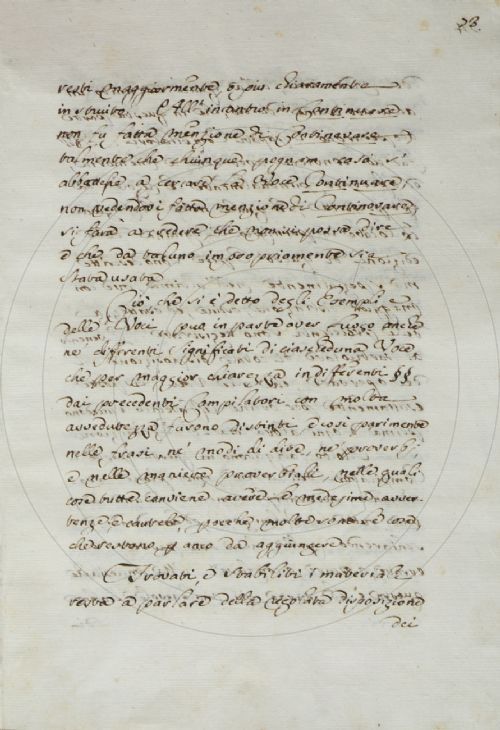 23.
resti maggiormente, e più chiaramente
instruito. E all' incontro in Continuare
non fu fatta menzione di Continovare
talmente che chiunque per un caso si
abbattesse a cercare la Voce Continuare,
non vedendovi fatta menzione di Continovare
si farà a credere che non si possa dire
o che da taluno impropriamente sia
stata usata.
Ciò che si è detto degli Esempi e
delle Voci può in parte aver luogo anche
ne' differenti significati di ciascheduna Voce
che per maggior chiarezza in differenti §§
dai precedenti Compilatori con molta
avvedutezza furono distinti e così parimente
nelle frasi ne' modi di dire, ne' proverbi,
e nelle maniere proverbiali, nelle quali
cose tutte conviene avere le medesime avver-
tenze e cautele, perché molte sono le cose
che restono da aggiungere
Trovati, e stabiliti i materiali
resta a parlare della disposizione
dei